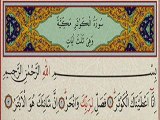 سورة الكوثر مكية
وهى ثلث ايات
بسم الله الرحمن الرحيم
انا اعطيناك الكوثر فصل لربك وانحر ان شانئك هو الابتر